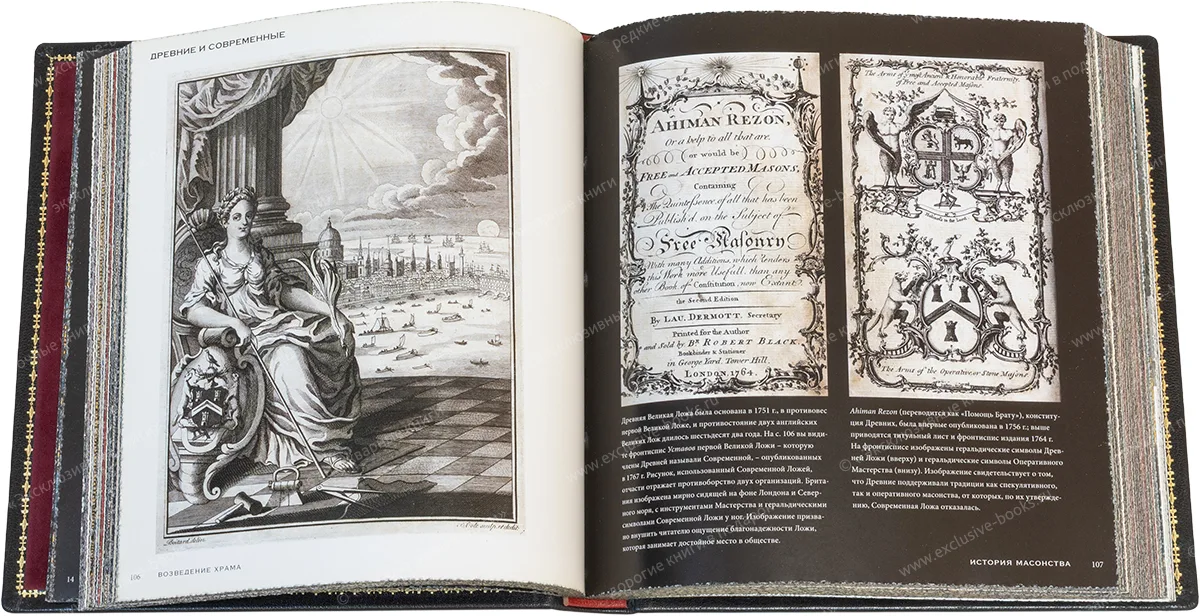 ДРЕВНИЕ И СОВРЕМЕННЫЕ
106 ВОЗВЕДЕНИЕ ХРАМА
14
AHIMAN REZON,
Or a help to all that are,
(or would be)
FREE and ACCEPTED MASONS,
Containing
The Quintessence of all that has been
Publish'd on the Subject of
Free Masonry
With many Additions, which renders
this Work more Usefull, than any
other Book of Constitution, now Extant.
the Second Edition
By LAU. DERMOTT. Secretary
Printed for the Author
and Sold by Br. ROBERT BLACK,
Bookbinder & Stationer
in George Yard, Tower Hill,
LONDON, 1764.
The Arms of ye most Ancient & Honorable Fraternity,
of Free and Accepted Masons.
The Arms of the Operative or Stone Masons
Древняя Великая Ложа была основана в 1751 г., в противовес
первой Великой Ложе, и противостояние двух английских
Великих Лож длилось шестьдесят два года. На с. 106 вы види-
те фронтиспис Уставов первой Великой Ложи – которую
члены Древней называли Современной, – опубликованных
в 1767 г. Рисунок, использованный Современной Ложей,
отчасти отражает противоборство двух организаций. Брита-
ния изображена мирно сидящей на фоне Лондона и Север-
ного моря, с инструментами Мастерства и геральдическими
символами Современной Ложи у ног. Изображение призва-
но внушить читателю ощущение благонадежности Ложи,
которая занимает достойное место в обществе.
Ahiman Rezon (переводится как «Помощь Брату»), конститу-
ция Древних, была впервые опубликована в 1756 г.; выше
приводятся титульный лист и фронтиспис издания 1764 г.
На фронтисписе изображены геральдические символы Древ-
ней Ложи (вверху) и геральдические символы Оперативного
Мастерства (внизу). Изображение свидетельствует о том,
что Древние поддерживали традиции как спекулятивного,
так и оперативного масонства, от которых, по их утвержде-
нию, Современная Ложа отказалась.
ИСТОРИЯ МАСОНСТВА 107
www.exclusive-books